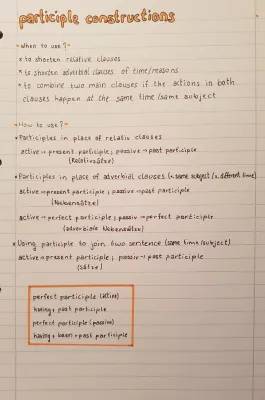 participle constructions
-When to use?-
* to shorten relative clauses
* to shorten adverbial clauses of time/reasons
* to combine two main clauses if the actions in both
clauses happen at the same time/same subject
-How to use?-
* Participles in place of relativ clauses
active → present participle; passive → past participle
(Relativsätze)
* Participles in place of adverbial clauses (1. same subject / 2. different time)
active → present participle; passive → past participle
(Nebensätze)
active → perfect participle; passiv → perfect participle
(adverbiale Nebensätze)
* Using participle to join two sentence (same time/subject)
active → present participle; passiv → past participle
(Sätze)
perfect participle (active)
having + past participle
perfect participle (passive)
having + been + past participle